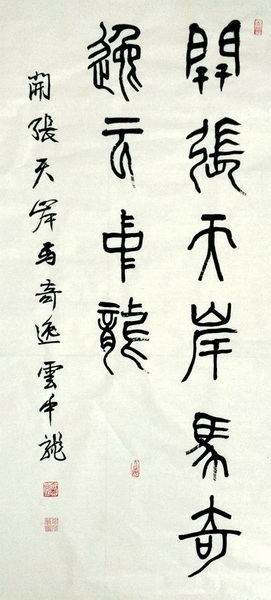 開張天岸馬奇
逸云中龍
開張天岸馬奇逸雲中龍